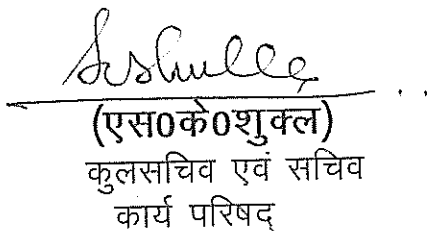 (एस0के0शुक्ल)
कुलसचिव एवं सचिव
कार्य परिषद्